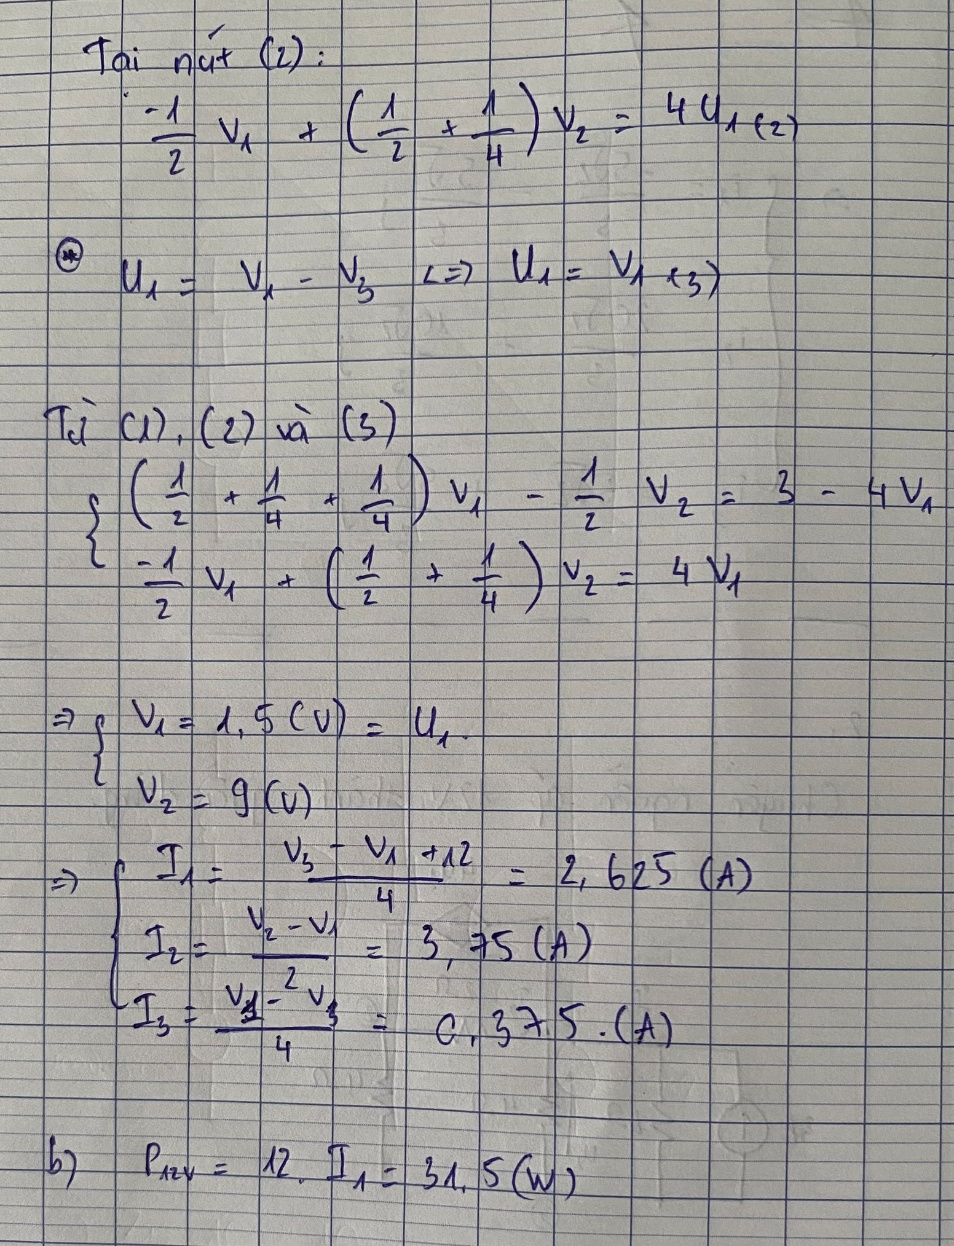 Tại nút (2):
-1/2 V₁ + (1/2 + 1/4) V₂ = 4U₁ (2)
⊛ U₁ = V₁ - V₃ <=> U₁ = V₁ (3)
Từ (1), (2) và (3)
{ (1/2 + 1/4 + 1/4) V₁ - 1/2 V₂ = 3 - 4V₁
-1/2 V₁ + (1/2 + 1/4) V₂ = 4V₁
=> { V₁ = 1,5 (V) = U₁.
V₂ = 9 (V)
=> { I₁ = (V₃ - V₁ + 12)/4 = 2,625 (A)
I₂ = (V₂ - V₁)/2 = 3,75 (A)
I₃ = (V₁ - V₃)/4 = 0,375.(A)
b) P₁₂ᵥ = 12. I₁ = 31,5 (W)